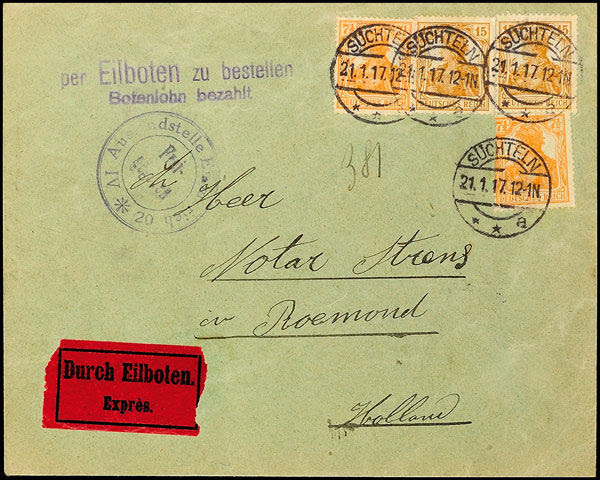 per Eilboten zu bestellen
Botenlohn bezahlt
7½ 15 15
SÜCHTELN SÜCHTELN SÜCHTELN
21.1.17.12-1N. 21.1.17.12-1N. 21.1.17.12-1N.
* * a
DEUTSCHES REICH
SÜCHTELN
21.1.17.12-1N.
* * a
7½
DEUTSCHES REICH
381
Heer
Notar Strens
Roemond
Holland
Durch Eilboten.
Exprès.